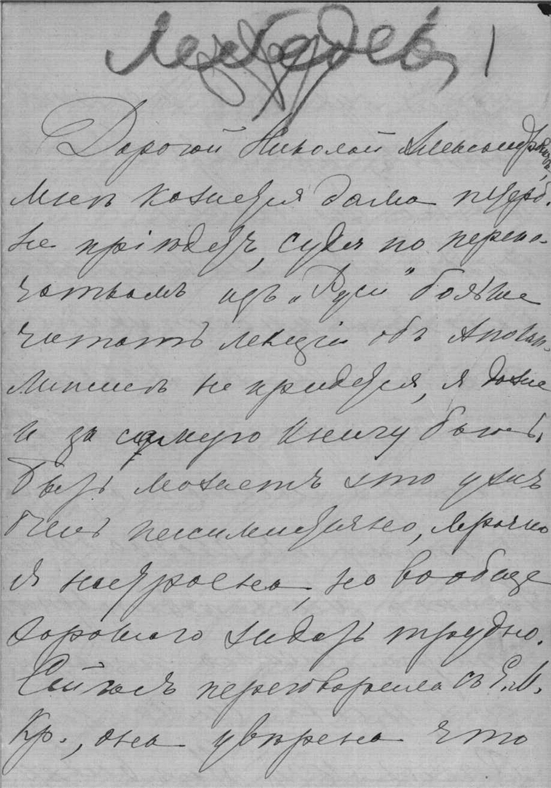 Лебедев, 1
Дорогой Николай Александрович,
мне кажется дама петерб.
не пріѣдетъ, судя по перепе-
чаткамъ изъ „Руси" больше
читать лекціи объ Апокал-
липсисѣ не придется, я даже
и за самую книгу боюсь.
Быть можетъ что ужъ
пессимистично, мрачно
я настроена, но вообще
хорошаго ждать трудно.
Сейчасъ переговорила съ Е. М.
Кр., она увѣрена что